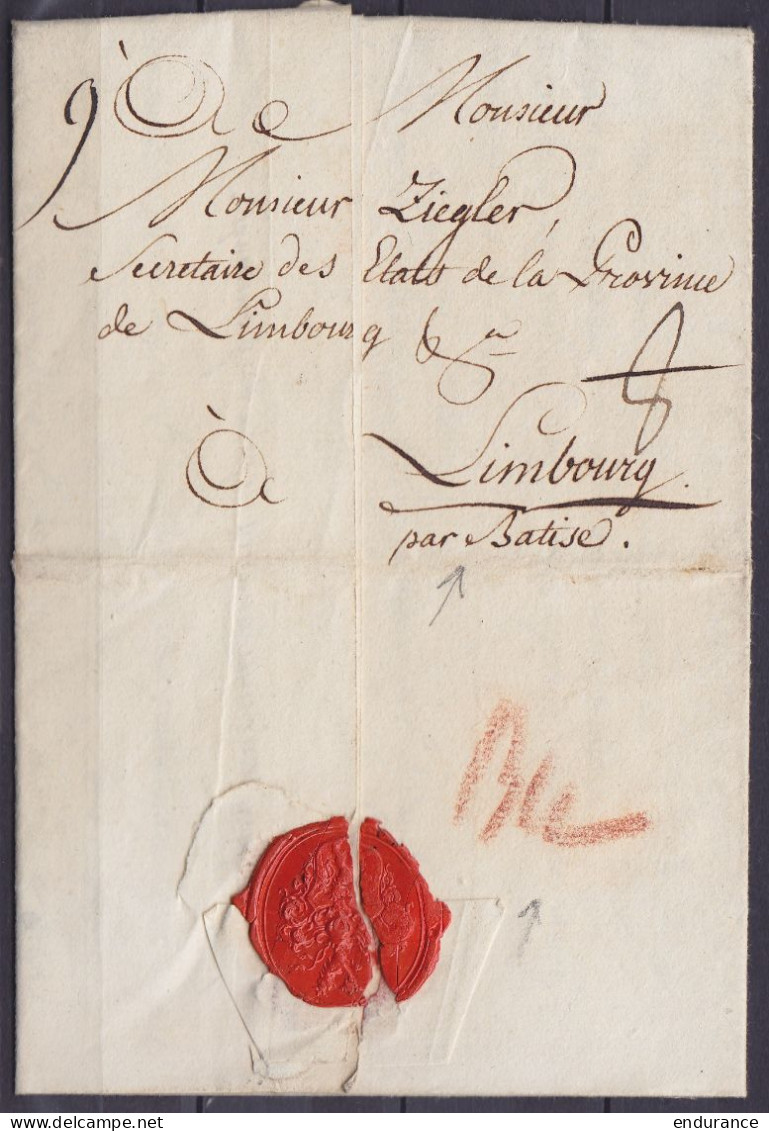 à Monsieur
Monsieur Ziegler,
Secretaire des Etats de la Province
de Limbourg &c
à Limbourg.
par Batise.
endurance